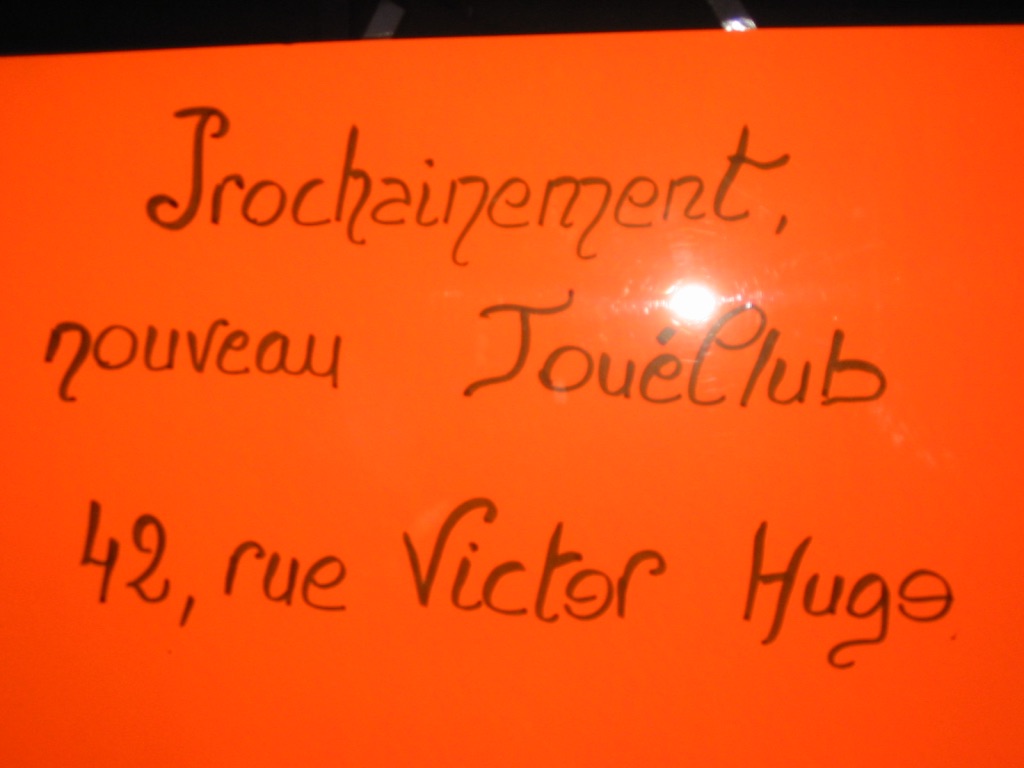 Prochainement,
nouveau JouéClub
42, rue Victor Hugo